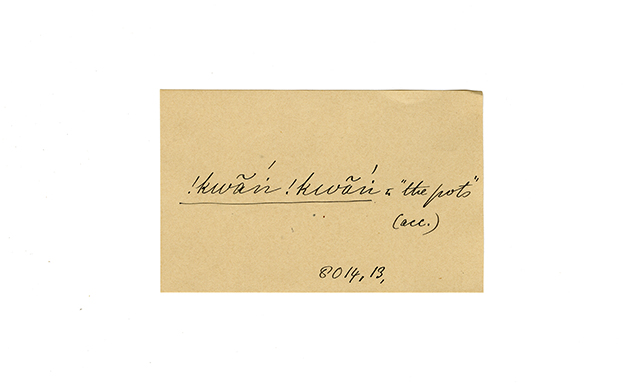 !kwãṅ́ !kwãṅ́ "the pots"
(acc.)
8014, 13,